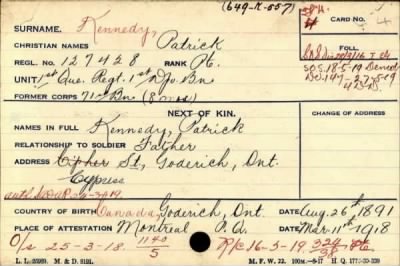 (649-K-557)
SURNAME. Kennedy,
CARD NO. 4
CHRISTIAN NAMES Patrick
REGL. NO. 127428 RANK Pte.
FOLL.
UNIT 1st Que. Regt. 1st Dfo. Bn
S.O.S. 18-5-19 Demob
FORMER CORPS 71st Bn (8 mos)
NEXT OF KIN.
CHANGE OF ADDRESS
NAMES IN FULL Kennedy, Patrick
RELATIONSHIP TO SOLDIER Father
ADDRESS Cipher St, Goderich, Ont.
Cypress
COUNTRY OF BIRTH Canada, Goderich, Ont. DATE Aug. 26th 1891
PLACE OF ATTESTATION Montreal P.Q. DATE Mar. 11th 1918
O/S 25-3-18 1140/5 R/C 16-5-19
L. L. 25989. M. & D. 8191. M. F. W. 22.